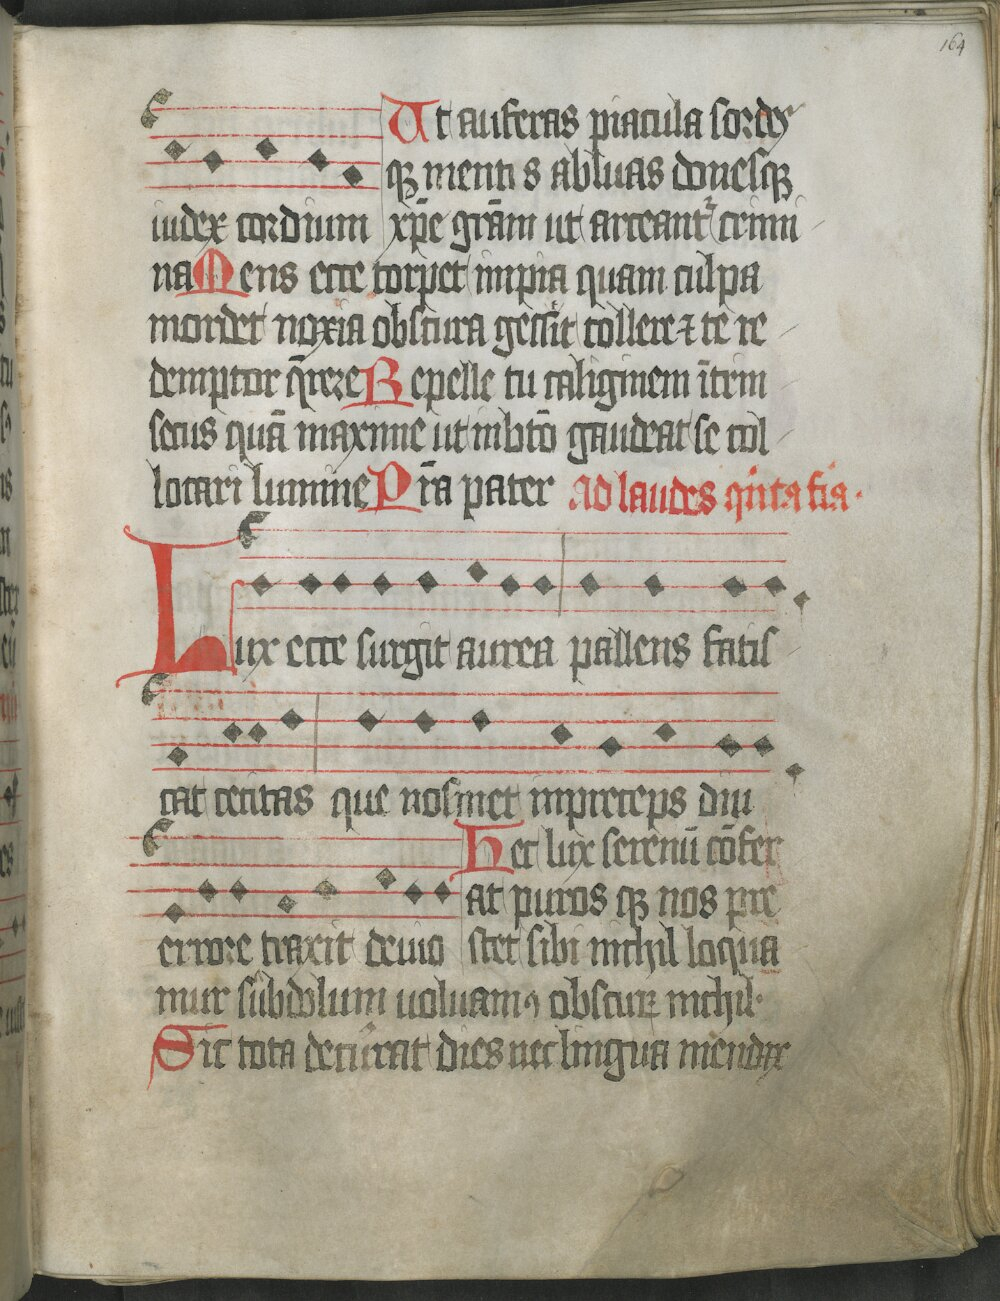 164
Ut auferas piacula sordes
q₃ mentis abluas donesq₃
iudex cordium xp̄e grām ut arceant᷑ crimi
na Mens ecce torpet impia quam culpa
mordet noxia obscura gessit tollere ⁊ te re
demptor q̄rere Repelle tu caliginem ītrin
secus quā maxime ut in bt̄o gaudeat se col
locari lumine Pr̄a pater ad laudes qͥnta fīa.
Lux ecce surgit aurea pallens fatis
cat cecitas que nosmet in preceps diu
Hec lux serenū cōfer
at puros q₃ nos pre
errore traxit deuio stet sibi nichil loqua
mur subdolum uoluamꝰ obscuꝝ nichil.
Sic tota decūrat dies nec lingua mendax